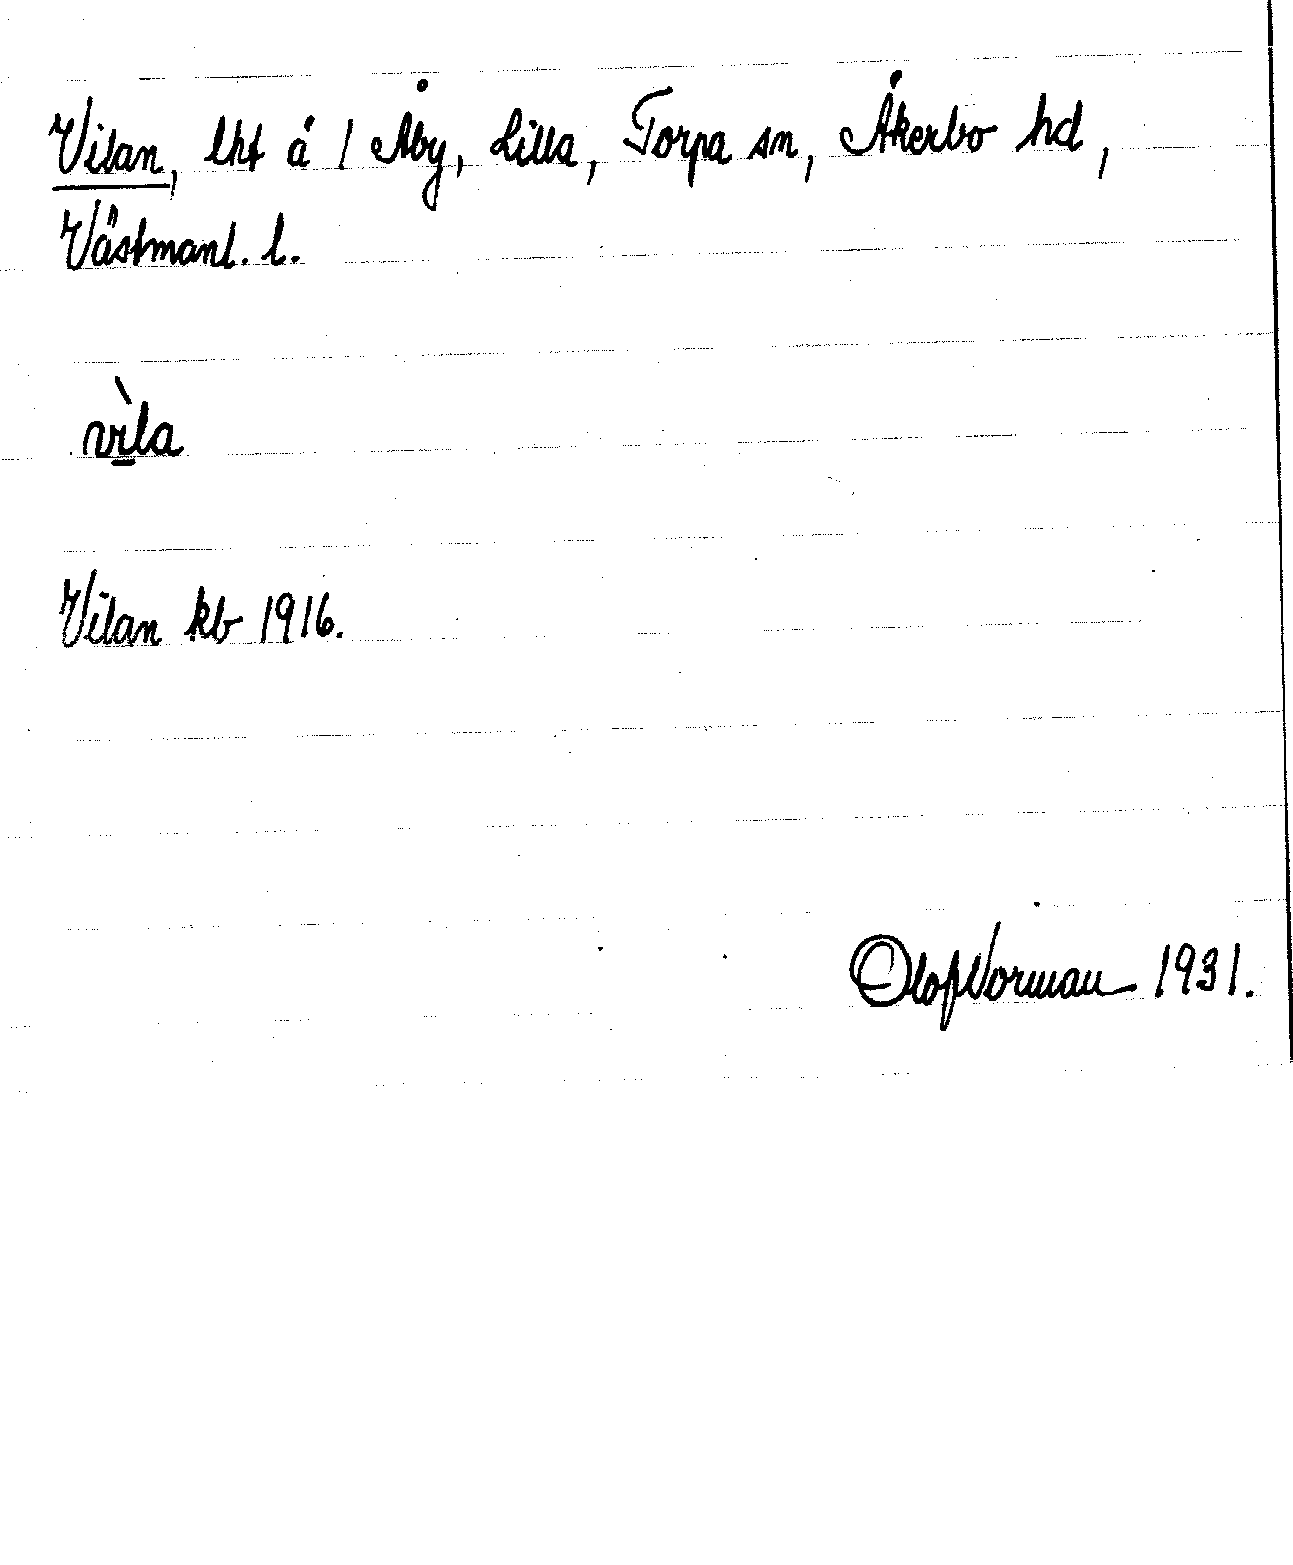 Vilan, lht å 1 Åby, Lilla, Torpa sn, Åkerbo hd,
Västmanl. l.
vı̀la
Vilan kb 1916.
Olof Vorman 1931.